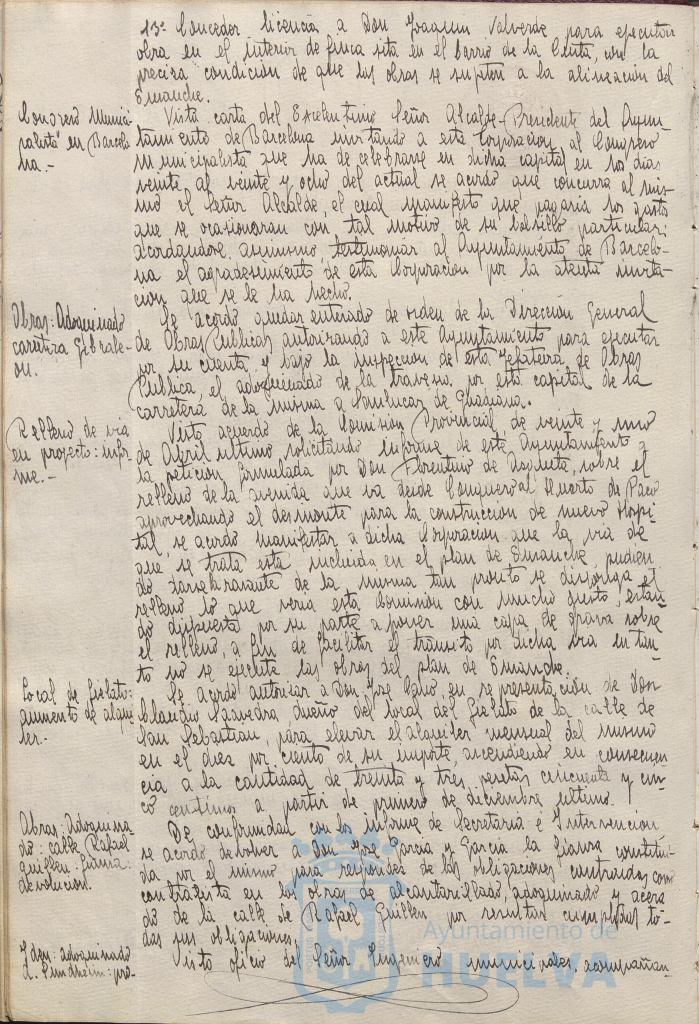 13º Conceder licencia a Don Joaquin Valverde para ejecutar
obra en el interior de finca sita en el barrio de la Cinta, con la
precisa condicion de que las obras se sujeten a la alineacion del
Ensanche.
Congreso Munici-
palista en Barcelo-
na.-
Vista carta del Excelentisimo Señor Alcalde-Presidente del Ayun-
tamiento de Barcelona invitando a esta Corporacion al Congreso
Municipalista que ha de celebrarse en dicha capital en los dias
veinte al veinte y ocho del actual se acordo que concurra al mis-
mo el Señor Alcalde, el cual manifesto que pagaria los gastos
que se ocasionaran con tal motivo de su bolsillo particular;
acordandose asimismo testimoniar al Ayuntamiento de Barcelo-
na el agradecimiento de esta Corporacion por la atenta invita-
cion que se le ha hecho.
Obras: Adoquinado
carretera Gibrale-
on.
Se acordo quedar enterado de orden de la Dirección General
de Obras Publicas autorizando a este Ayuntamiento para ejecutar
por su cuenta y bajo la inspeccion de esta Jefatura de Obras
Publica, el adoquinado de la travesia por esta capital de la
carretera de la misma a Sanlucar de Guadiana.
Relleno de via
en proyecto: infor-
me.-
Visto acuerdo de la Comision Provincial de veinte y uno
de Abril ultimo, solicitando informe de este Ayuntamiento a
la peticion formulada por Don Florentino de Azqueta, sobre el
relleno de la avenida que va desde Conquero al Huerto de Paco
aprovechando el desmonte para la construccion de nuevo Hospi-
tal, se acordo manifestar a dicha Corporacion que la via de
que se trata esta incluida en el plan de Ensanche, pudien-
do darse la rasante de la misma tan pronto se disponga el
relleno lo que veria esta Comision con mucho gusto, estan-
do dispuesta por su parte a poner una capa de grava sobre
el relleno, a fin de facilitar el transito por dicha via en tan-
to no se ejecute las obras del plan de Ensanche.
Local de Fielato:
aumento de alqui-
ler.-
Se acordo autorizar a Don Jose Calvo, en representacion de Don
Claudio Saavedra, dueño del local del Fielato de la calle de
San Sebastian, para elevar el alquiler mensual del mismo
en el diez por ciento de su importe, ascendiendo en consecuen-
cia a la cantidad de treinta y tres pesetas cincuenta y cin-
co centimos a partir de primero de diciembre ultimo.
Obras: Adoquina-
do: calle Rafael
Guillen: fianza:
devolucion.
De conformidad con los informe de Secretaria e Intervencion,
se acordo devolver a Don Jose Garcia y Garcia la fianza constitui-
da por el mismo para responder de las obligaciones contraidas como
contratista en las obras de alcantarillado, adoquinado y acera-
do de la calle de Rafael Guillen por resultar cumplidas to-
das sus obligaciones.
Idem: adoquinado
d. Sundheim: pro-
Visto oficio del Señor Ingeniero municipales acompañan-
Ayuntamiento de
HUELVA